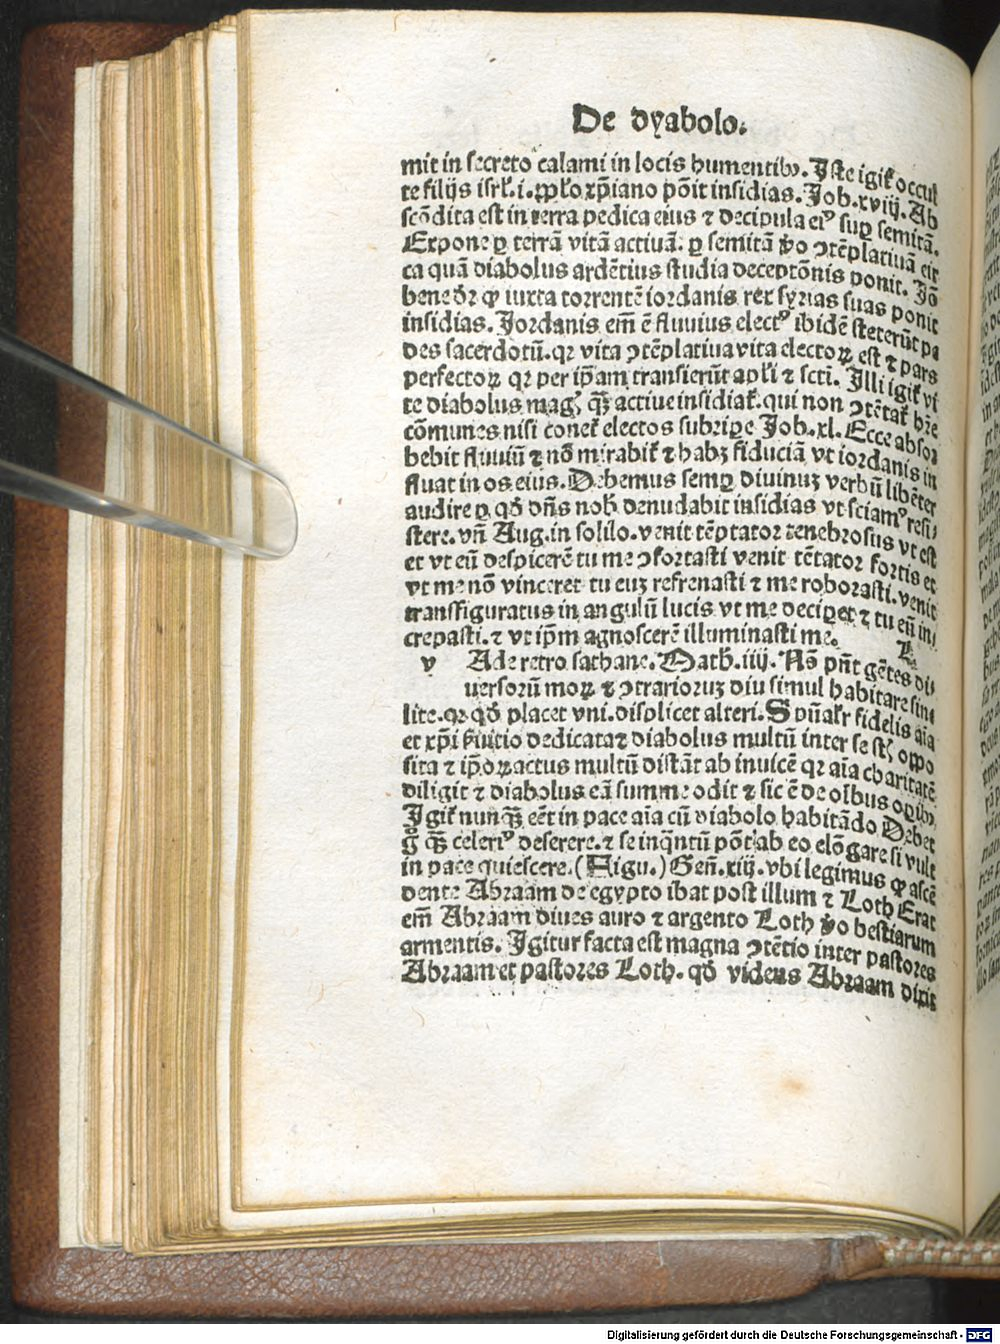 De dyabolo.
mit in secreto calami in locis humentibꝰ. Iste igit̃ occul
te filijs isrl̃. i. ꝓplo xp̃iano põit insidias. Job. xviij. Ab
scõdita est in terra pedica eius ⁊ decipula eiꝰ suꝑ semitã.
Expone ꝑ terrã vitã actiuã. ꝑ semitã ꝟo ↄtẽplatiuã cir
ca quã diabolus ardẽtius studia deceptõnis ponit. Jõ
bene dr̃ ꝙ iuxta torrentẽ iordanis rex syrias suas ponit
insidias. Jordanis em̃ ẽ fluuius electꝰ ibidẽ steterũt pe
des sacerdotũ. qꝛ vita ↄtẽplatiua vita electoꝝ est ⁊ pars
perfectoꝝ qꝛ per ip̃am transierũt apl̃i ⁊ scti. Illi igit̃ vi
te diabolus mag̃ ꝙ̃ actiue insidiat̃. qui non ↄtẽtat̃ hr̃e
cõmunes nisi conet̃ electos subriꝑe Job. xl. Ecce absor
bebit fluuiũ ⁊ nõ mirabit̃ ⁊ habꝫ fiduciã vt iordanis in
fluat in os eius. Debemus semꝑ diuinuꝫ verbũ libẽter
audire ꝑ qd̃ dñs nob̃ denudabit insidias vt sciamꝰ resi/
stere. vñ Aug. in solilo. venit tẽptator tenebrosus vt est
et vt eũ despicerẽ tu me ↄfortasti venit tẽtator fortis et
vt me nõ vinceret tu euꝫ refrenasti ⁊ me roborasti. venit
transfiguratus in angulũ lucis vt me deciꝑet ⁊ tu eũ in/
crepasti. ⁊ vt ip̃m agnoscerẽ illuminasti me.
v Ade retro sathane. Math. iiij. Nõ pñt gẽtes di/
uersorũ moꝝ ⁊ ↄtrarioruꝫ diu simul habitare sine
lite. qꝛ qd̃ placet vni. displicet alteri. Spũalr̃ fidelis aĩa
et xp̃i ẜuitio dedicata ⁊ diabolus multũ inter se st̃ oppo
sita ⁊ ip̃oꝝ actus multũ distãt ab inuicẽ qꝛ aĩa charitatẽ
diligit ⁊ diabolus eã summe odit ⁊ sic ẽ de oĩbus oꝑibꝰ.
Igit̃ nunꝙ̃ eẽt in pace aĩa cũ diabolo habitãdo Debet
g̊ ꝙ̃ celeriꝰ deserere. ⁊ se inq̃ntũ põt ab eo elõgare si vult
in pace quiescere. (Figu.) Geñ. xiij. vbi legimus ꝙ ascẽ
dente Abraam de egypto ibat post illum ⁊ Loth Erat
em̃ Abraam diues auro ⁊ argento Loth ꝟo bestiarum
armentis. Igitur facta est magna ↄtẽtio inter pastores
Abraam et pastores Loth. qd̃ videns Abraam dixit
Digitalisierung gefördert durch die Deutsche Forschungsgemeinschaft - DFG